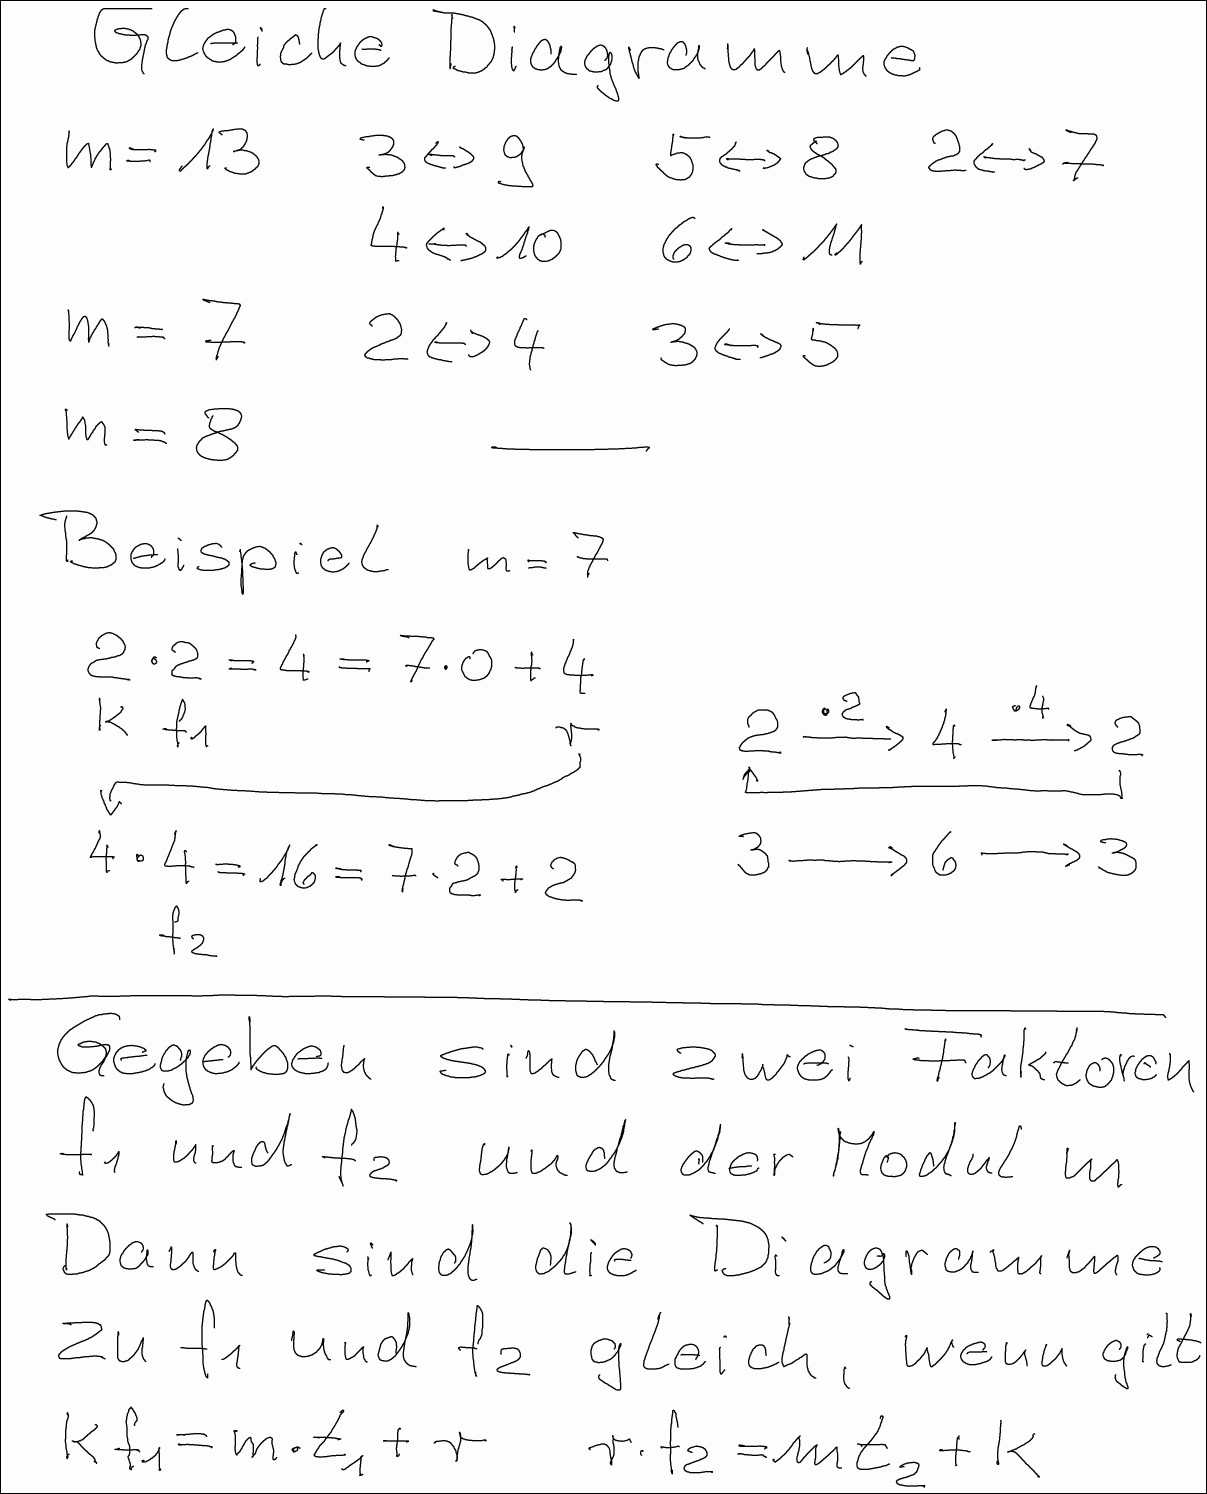 Gleiche Diagramme
m = 13 3 ↔ 9 5 ↔ 8 2 ↔ 7
4 ↔ 10 6 ↔ 11
m = 7 2 ↔ 4 3 ↔ 5
m = 8 —
Beispiel m = 7
2 · 2 = 4 = 7 · 0 + 4
k f1 r
4 · 4 = 16 = 7 · 2 + 2
f2
·2 ·4
2 → 4 → 2
3 → 6 → 3
Gegeben sind zwei Faktoren
f1 und f2 und der Modul m
Dann sind die Diagramme
zu f1 und f2 gleich, wenn gilt
k f1 = m · t1 + r r · f2 = m t2 + k